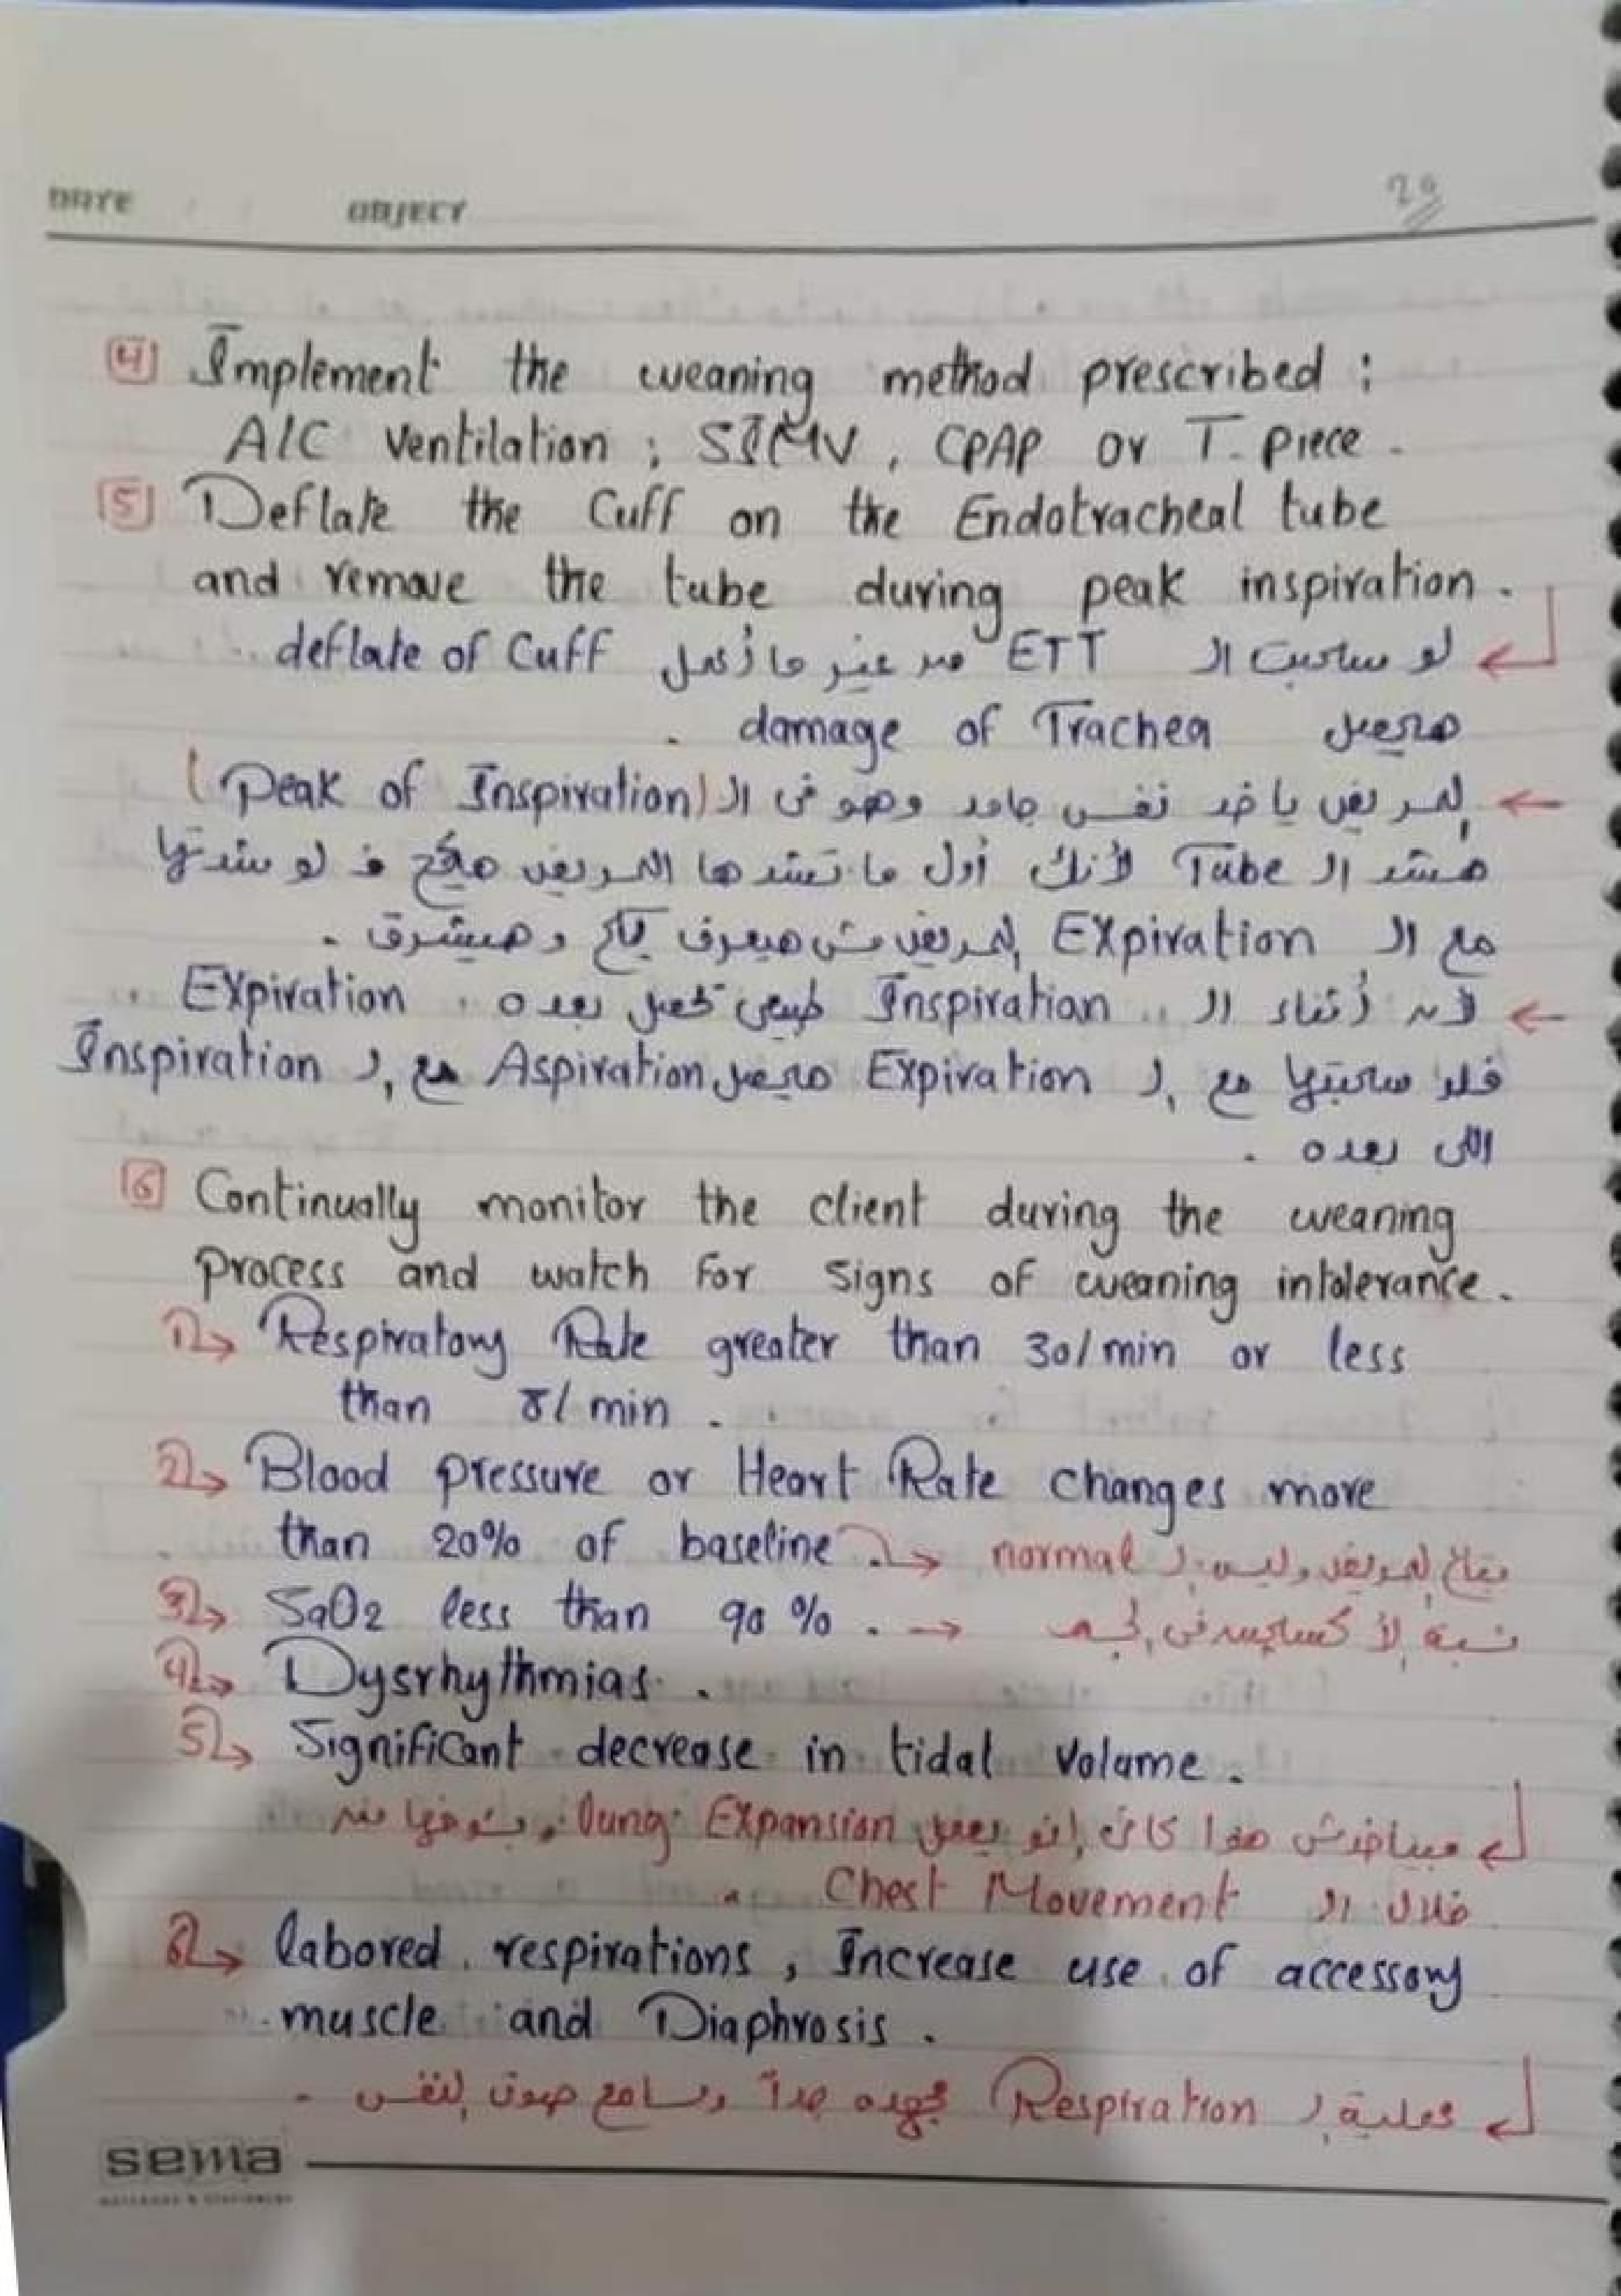 DATE / / OBJECT
29
[4] Implement the weaning method prescribed :
A/C ventilation ; SIMV , CPAP or T- piece .
[5] Deflate the Cuff on the Endotracheal tube
and remove the tube during peak inspiration .
لو سحبت الـ ETT من غير ما أعمل deflate of Cuff
هيحصل damage of Trachea .
← المريض ياخد نفس جامد وهو في الـ (Peak of Inspiration)
هشد الـ Tube لأنك أول ما تشدها المريض هيكح فـ لو شدتها
مع الـ Expiration المريض مش هيعرف يكح وهيشرق .
← لأن أثناء الـ Inspiration طبيعي يحصل بعده Expiration ..
فلو سحبتها مع الـ Expiration هيحصل Aspiration مع الـ Inspiration
اللي بعده .
[6] Continually monitor the client during the weaning
process and watch for signs of weaning intolerance .
1→ Respiratory Rate greater than 30/min or less
than 8/min .
2→ Blood pressure or Heart Rate changes more
than 20% of baseline . → بتاع المريض وليس الـ normal
3→ SaO2 less than 90 % . → نسبة الأكسجين في الجسم
4→ Dysrhythmias .
5→ Significant decrease in tidal volume .
مبياخدش هوا كافي إنو يعمل lung Expansion وبنشوفها من
خلال الـ Chest Movement .
6→ labored respirations , Increase use of accessory
muscle and Diaphrosis .
عملية الـ Respiration مجهده جداً وسامع صوت النفس .
sema